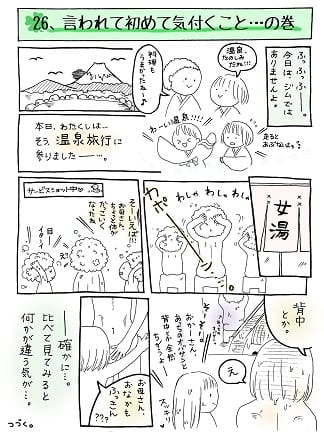 26、言われて初めて気付くこと…の巻
ふっふっふー。
今日は、ジムでは
ありませんよ。
温泉、
たのしみ
だね!!!
料理も
うまかったね~♪
走ると
あぶないよ。
わーい温泉!!!!
本日、わたくしは…
そう、温泉旅行に
参りました――…。
女湯
わしゃ
わしゃ
わしゃ
カポーン
サービスショット中
そーいえば!!!
お母さん、
ちょっと体が
かっこいく
なったね
目
イター…イ
背中
とか。
え
おかーさん、
あっちのおばさんと
背中とか全然
ちがうよ
スッキリ
お母さん、
おなかも
ふっきん
???
――確かに…。
比べて見てみると
何かが違う気が…。
つづく。